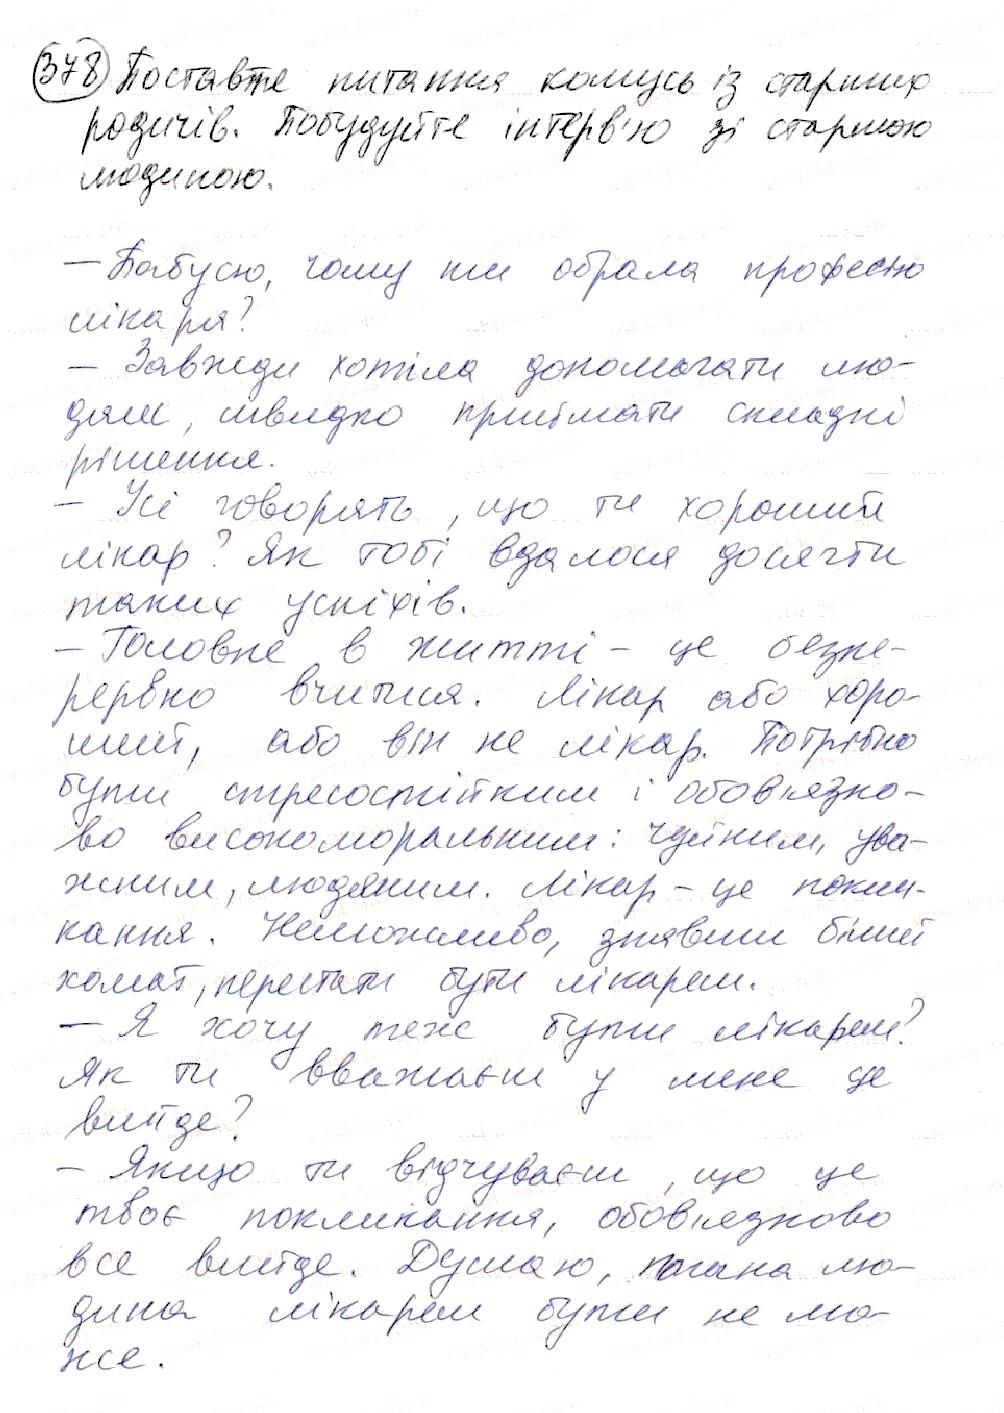 378 Поставте питання комусь із старших
родичів. Побудуйте інтерв'ю зі старшою
людиною.
— Бабусю, чому ти обрала професію
лікаря?
— Завжди хотіла допомагати лю-
дям, швидко приймати складні
рішення.
— Усі говорять, що ти хороший
лікар? Як тобі вдалося досягти
таких успіхів.
— Головне в житті — це безпе-
рервно вчитися. Лікар або хоро-
ший, або він не лікар. Потрібно
бути стресостійким і обов'язко-
во високоморальним: чуйним, ува-
жним, людяним. Лікар — це поклик-
кання. Неможливо, знявши білий
халат, перестати бути лікарем.
— Я хочу теж бути лікарем?
Як ти вважаєш у мене це
вийде?
— Якщо ти відчуваєш, що це
твоє покликання, обов'язково
все вийде. Думаю, погана лю-
дина лікарем бути не мо-
же.